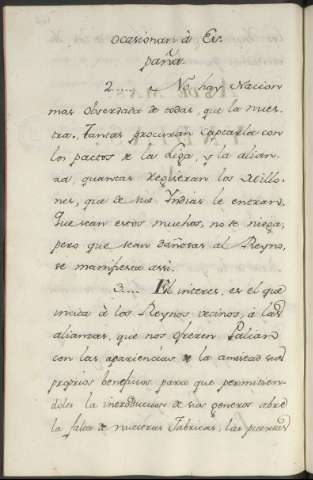 ocasionan à Es-
paña.
2.... No hay Nacion
mas obsertada de todas, que la nues-
tra. Tantas procuran captarla con
los pactos de la Liga, y la alian-
za, quantas requieran los Millo-
nes, que de sus Yndias le entran.
Que sean estos muchos, no se niega;
pero que sean dañosas al Reyno,
se manifiesta assi.
3.... El interes, es el que
incita à los Reynos vecinos, à las
alianzas, que nos ofrezen. Palian
con las apariencias de la amistad sus
proprios beneficios para que permitien-
doles la introduccion de sus generos abre
la falta de nuestras Fabricas, las puertas